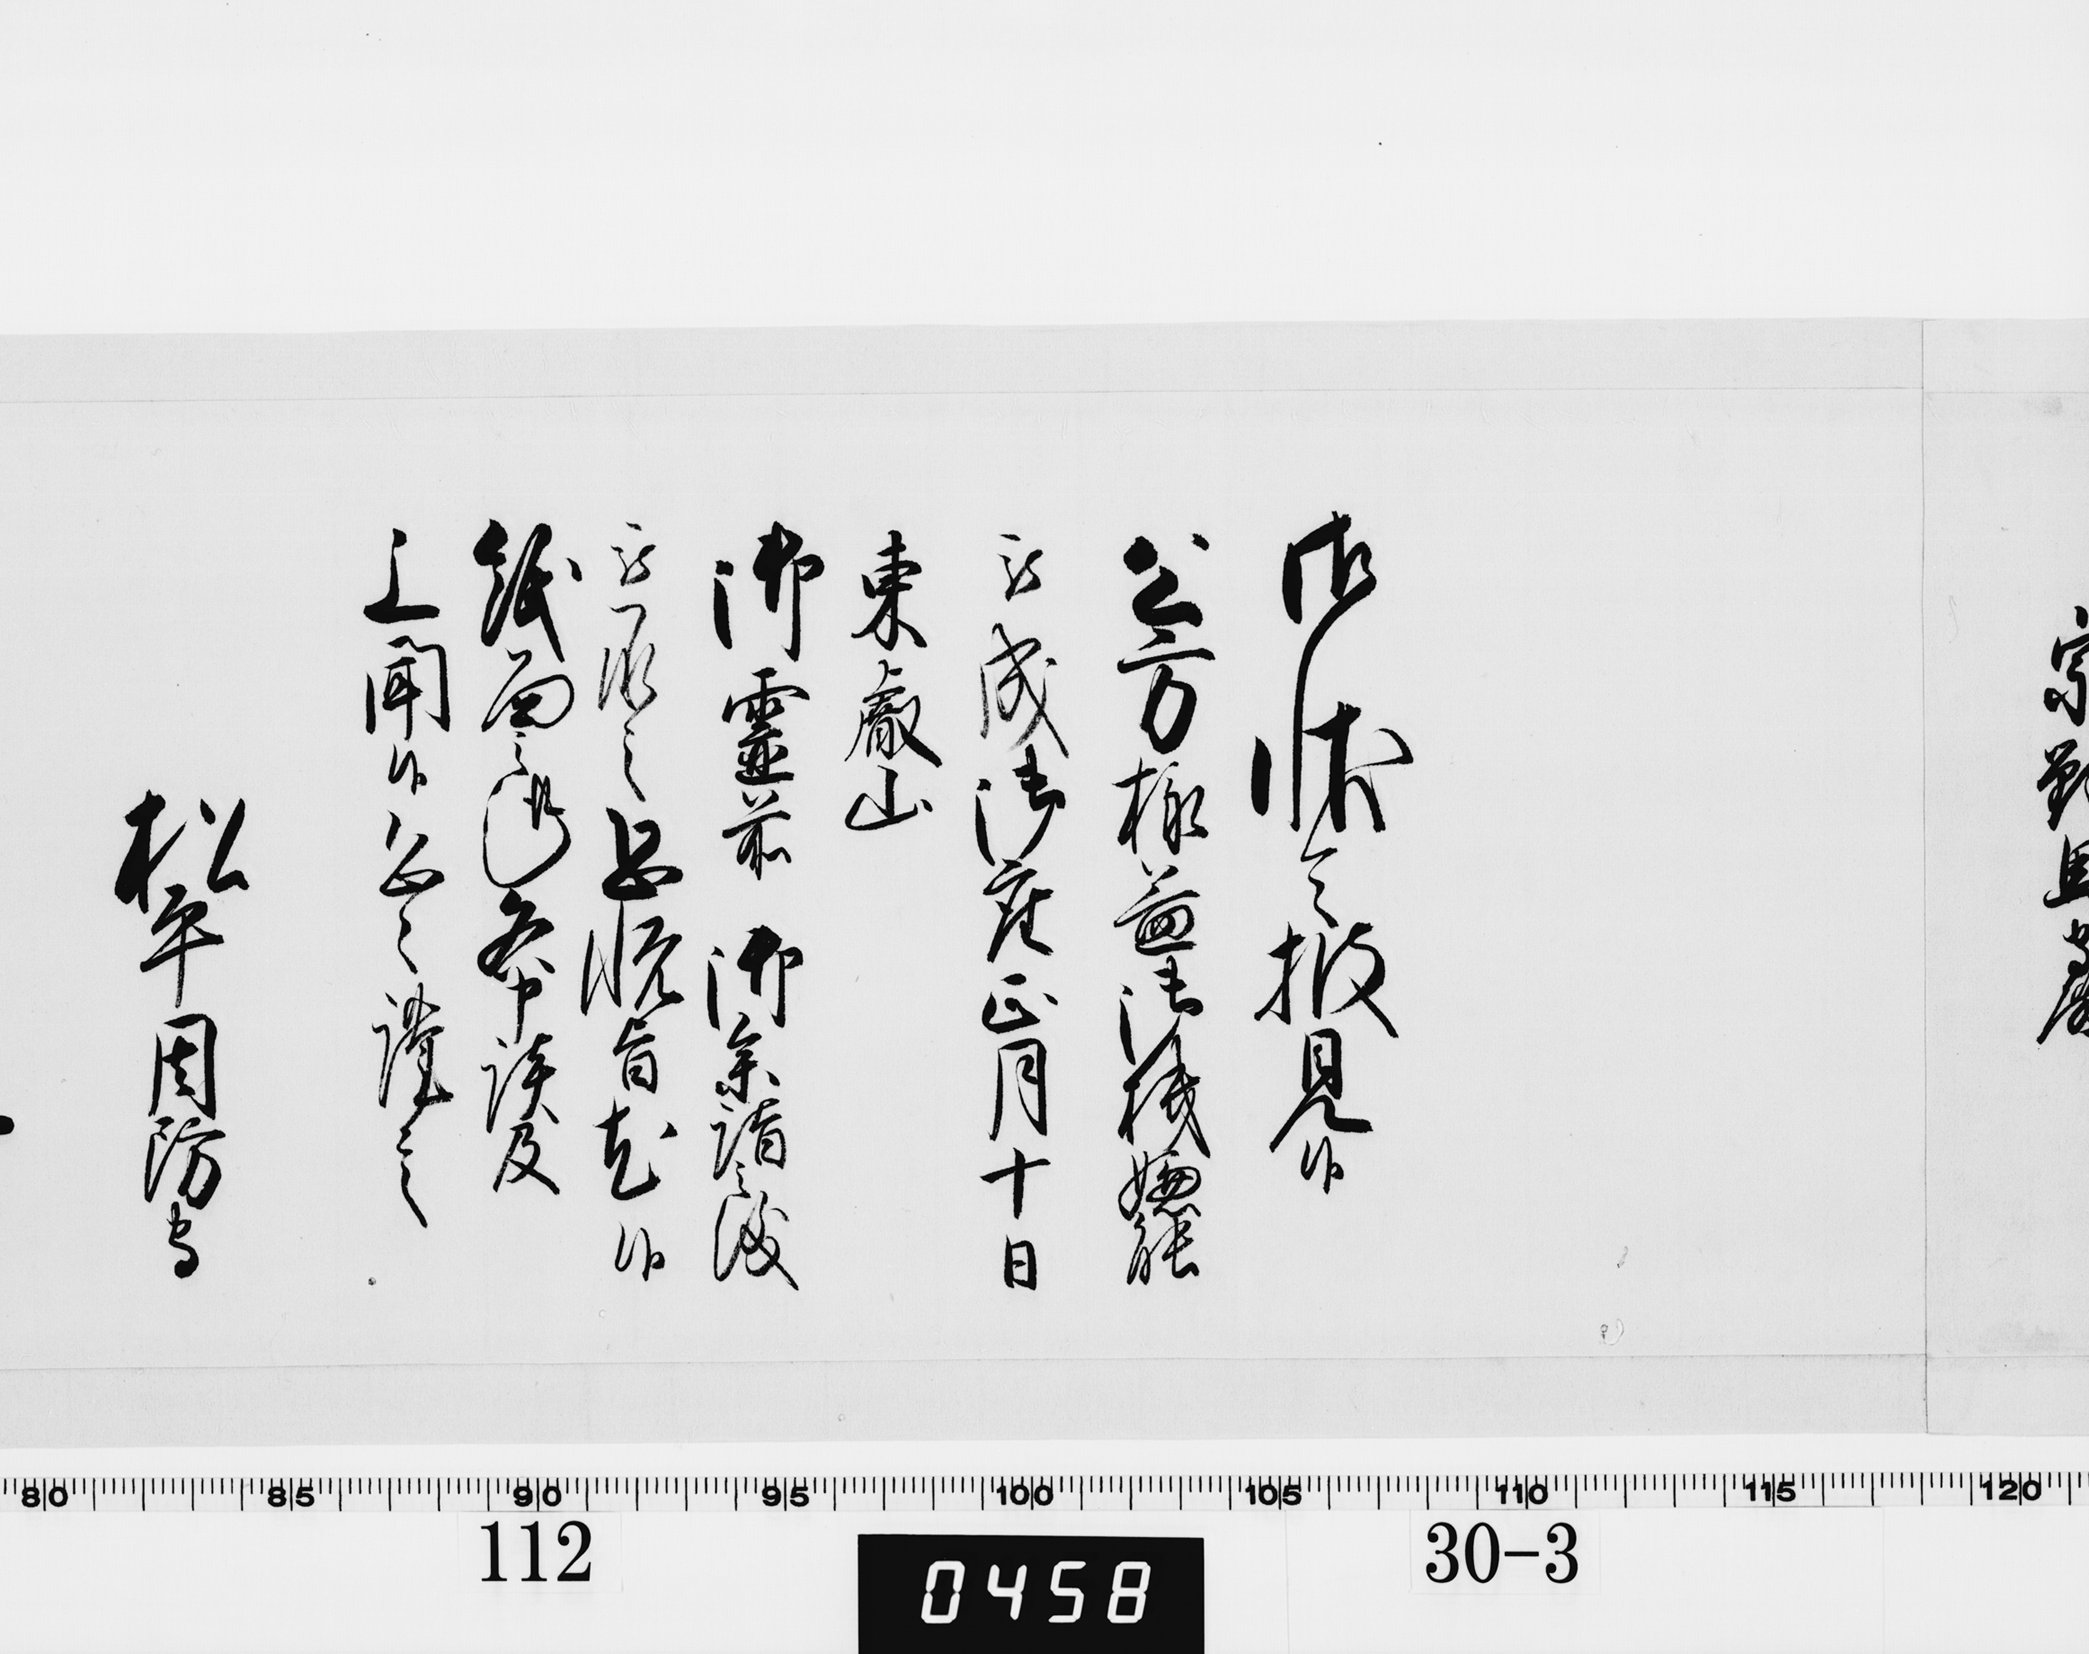 宗對馬
御状令披見候
公方様益御機嫌能
被成御座正月十日
東叡山
御靈前 御参詣之段
被承之恐悦旨尤候
紙面之趣各申談及
上聞候恐々謹言
松平周防守
80 85 90 95 100 105 110 115 120
112 0458 30-3